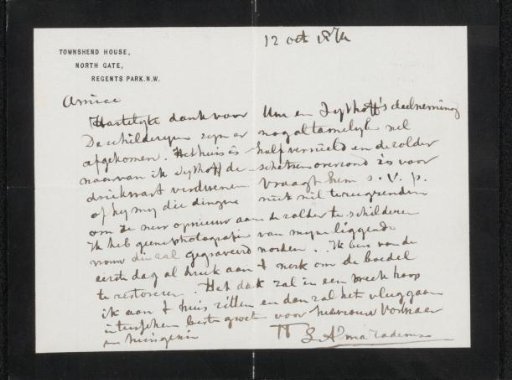 TOWNSHEND HOUSE,
NORTH GATE,
REGENTS PARK. N.W.
12 oct 1874
Amice
Hartelyke dank voor Uw en Sythoff's deelneming
De schilderyen zyn er nog al tamelyk wel
afgekomen. Het huis is half vernield en de zolder
waarvan ik Sythoff de schetsen overzond is voor
driekwart verdwenen vraagt hem s.v.p.
of hy my die dingen niet wil terugzenden
om ze weer opnieuw aan de zolder te schilderen
Ik heb geene photografie van myne liggende
vrouw die zal gegraveerd worden. Ik ben van de
eerste dag al druk aan t werk om de boedel
te restoreren. Het dak zal in een week hoop
ik aan t huis zitten en dan zal het vlug gaan
intusschen beste groet voor mevrouw Vosmaer
en huisgezin
L. Alma Tadema